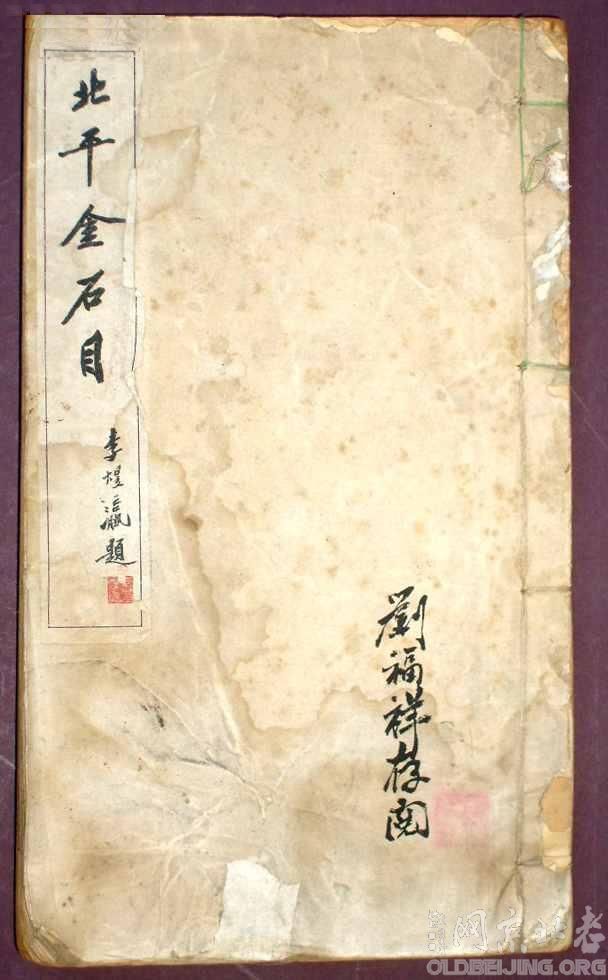 北平金石目
李煜瀛題
劉福祥存閱
老北京网
OLDBEIJING.ORG